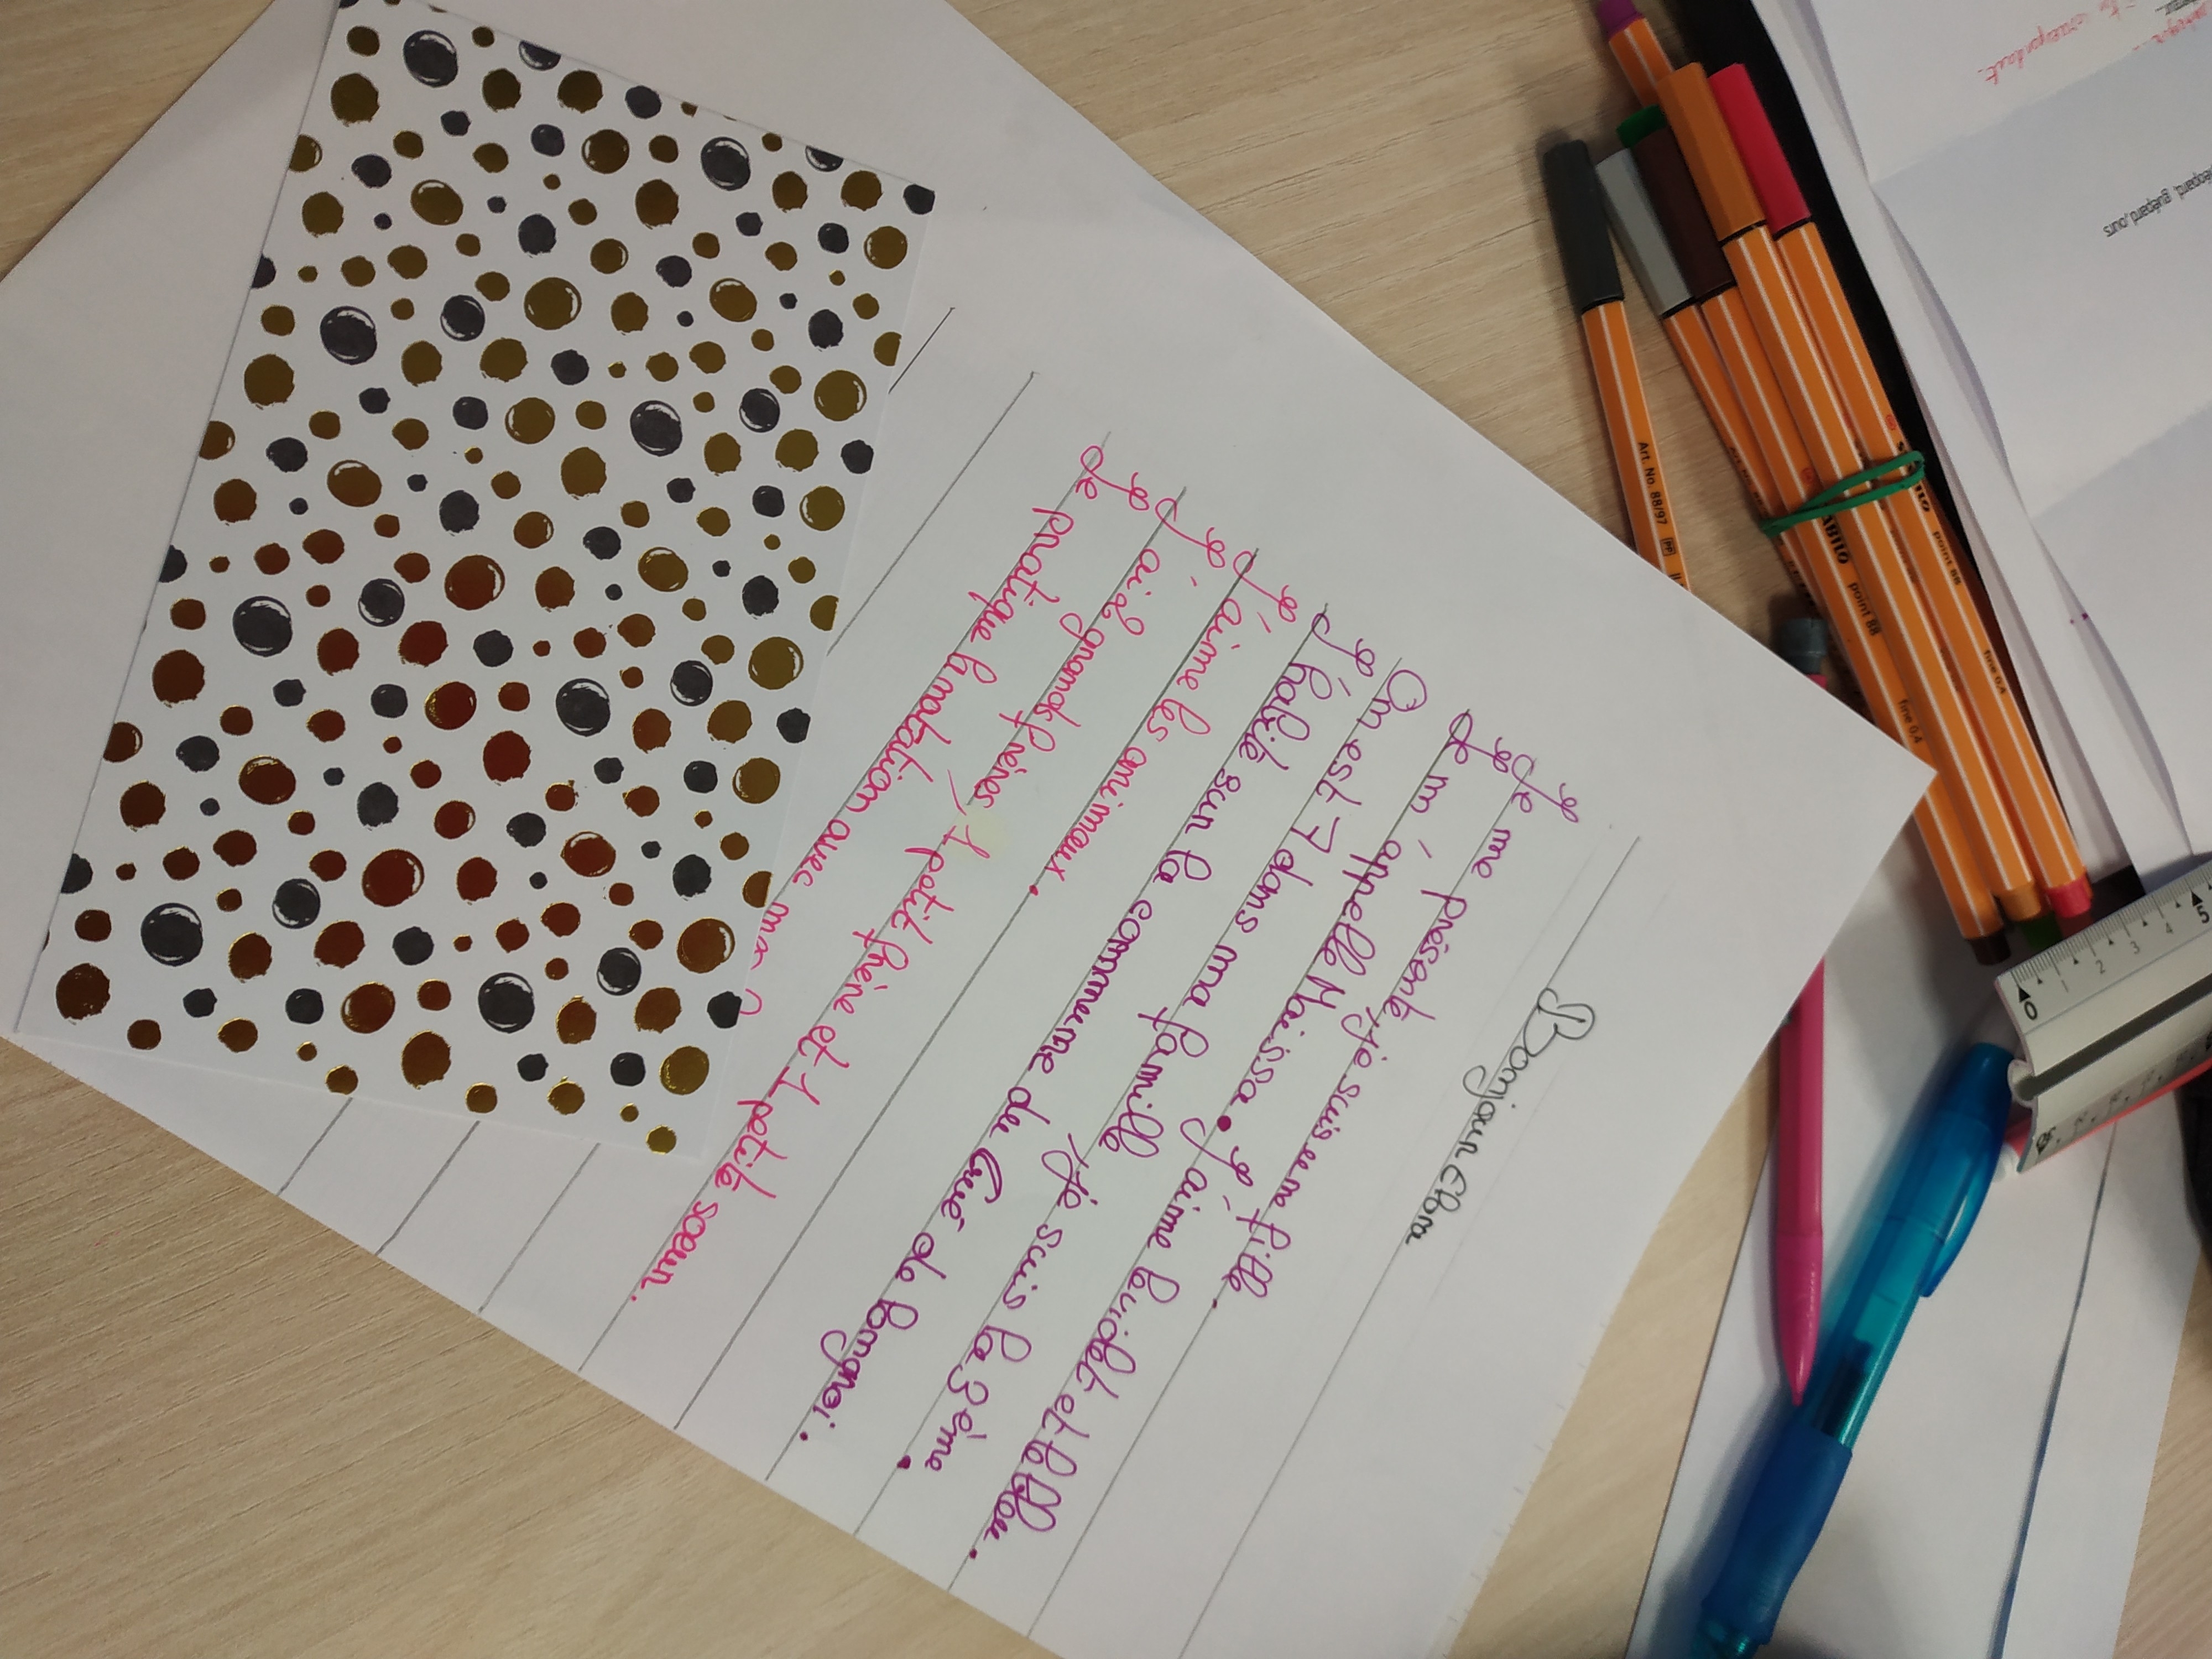 Bonjour Elora
Je me présente, je suis une fille.
Je m'apnelle Maissa. J'aime le violet et le bleu.
On est 7 dans ma famille, je suis la 3ème.
J'habite sur la commeume du Gué de Longroi.
J'aime les animaux.
J'ai 2 grands frères, 1 petit frère et 1 petite soeur.
Je pratique la natation avec
Art. No. 88/97
point 88
fine 0,4
point 88
fine 0.4
guépard, ours
0 1 2 3 4 5